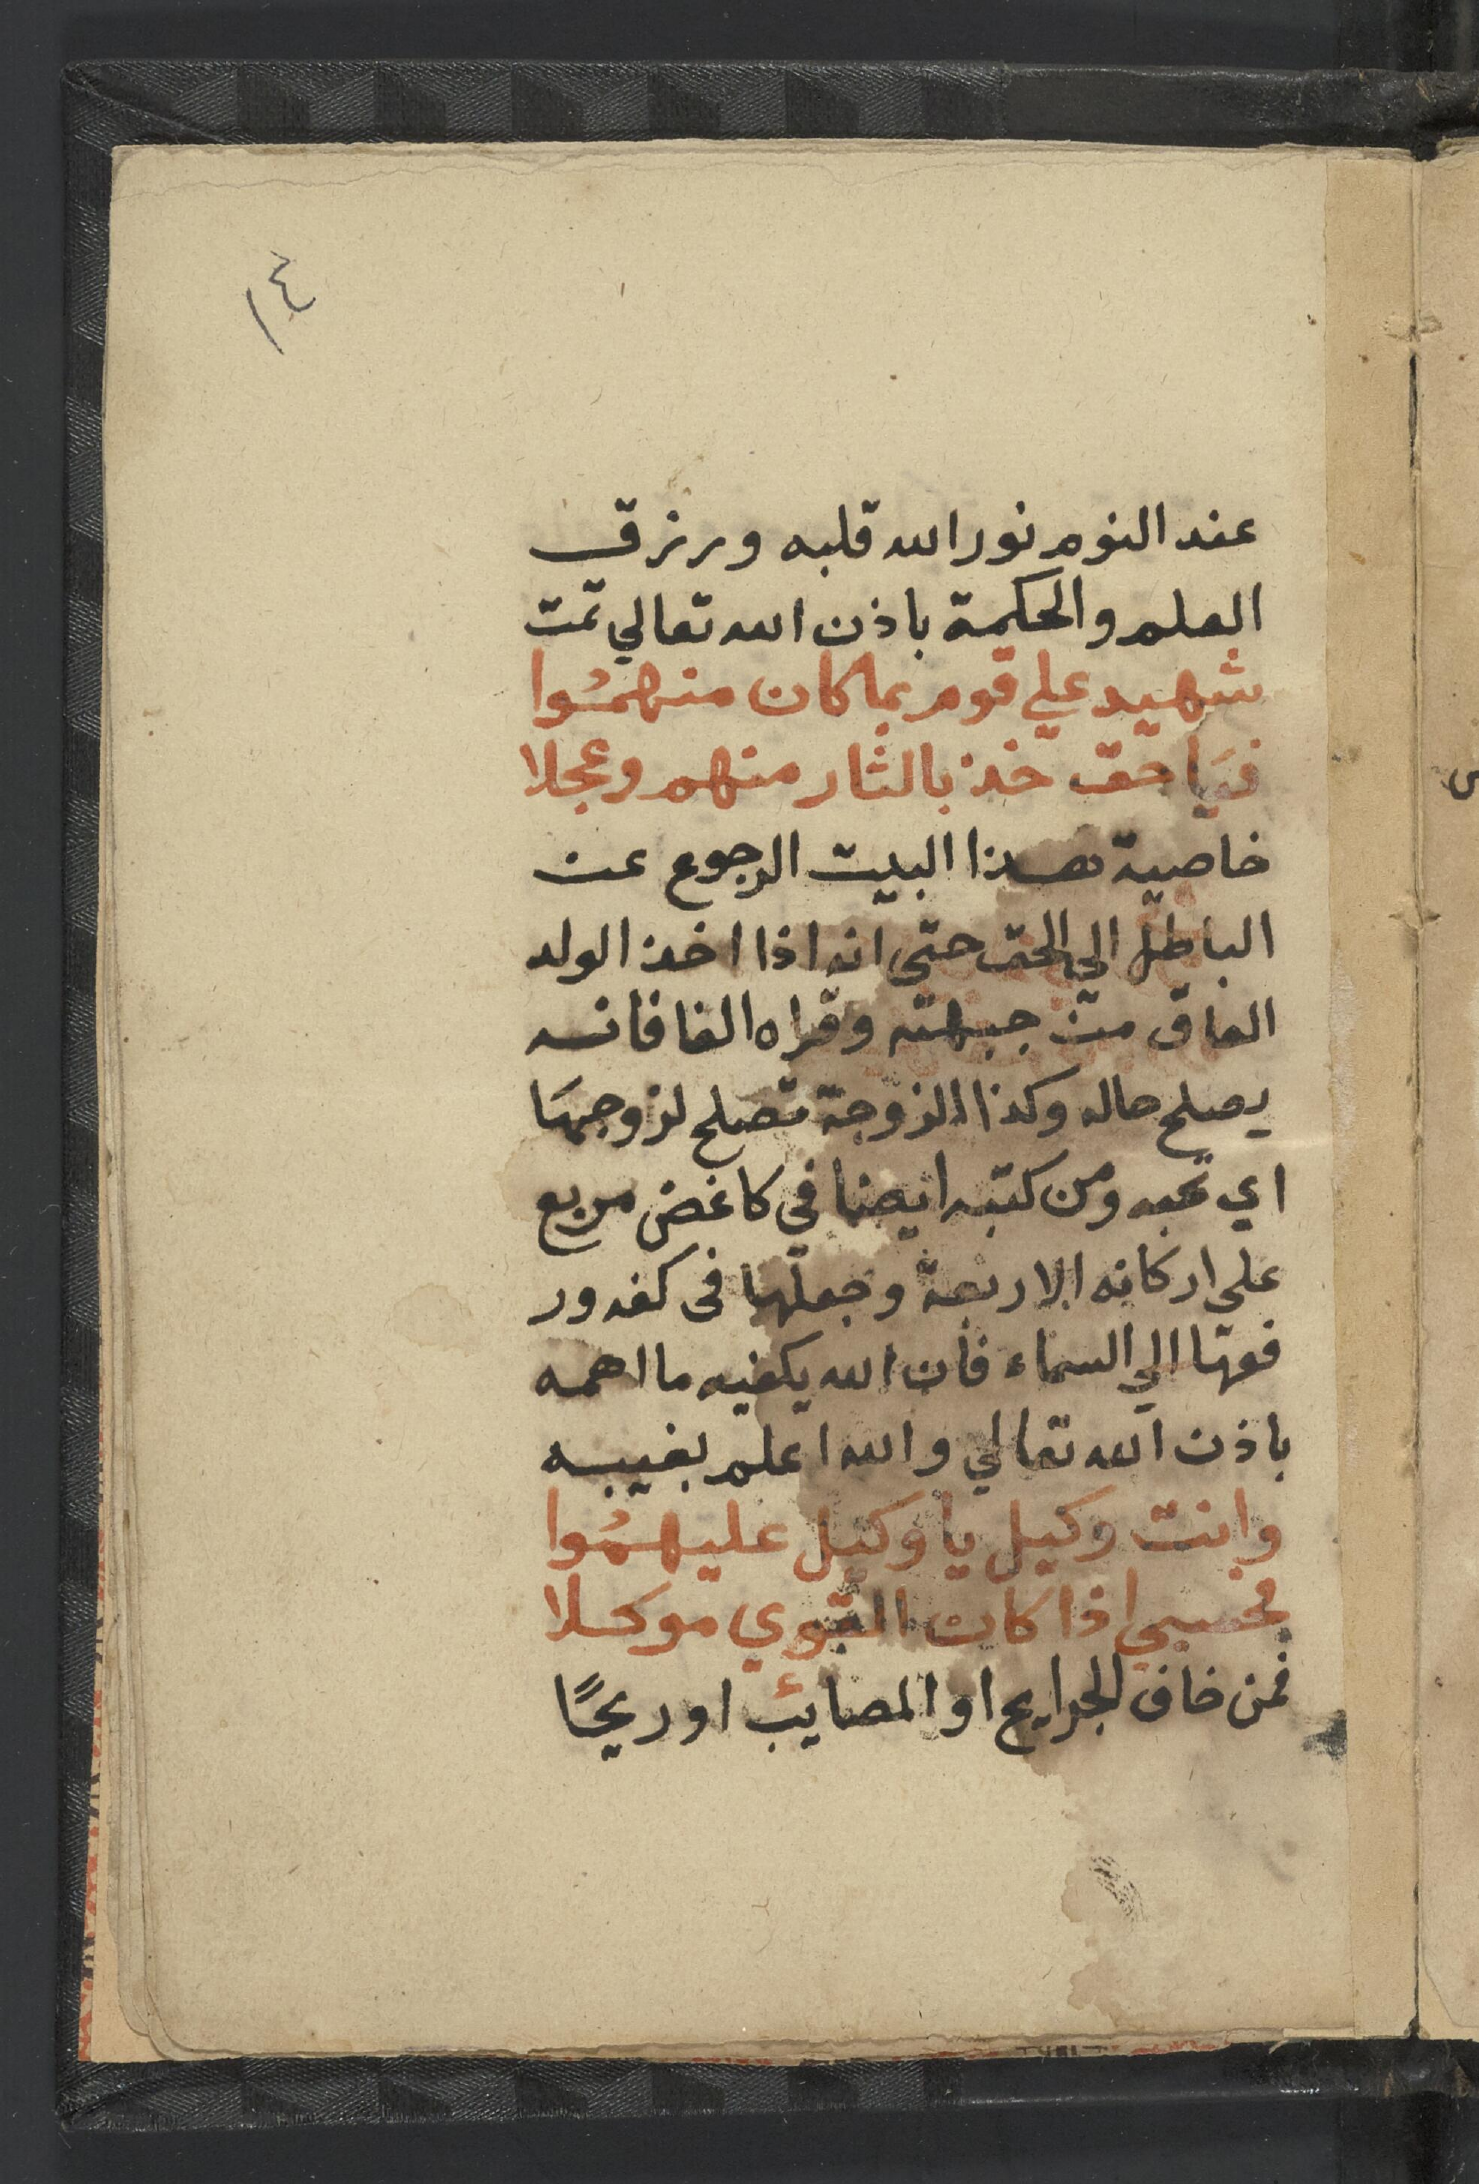 ١٤
عند النوم نور الله قلبه ورزق
العلم والحكمة باذن الله تعالي تمت
شهيد علي قوم بما كان منهمُوا
فيَا حق خذ بالثار منهم وعجلا
خاصية هذا البيت الرجوع عن
الباطل الي الحق حتى انه اذا اخذ الولد
العاق من جبهته وقراه الفا فانه
يصلح حاله وكذا الزوجة تصلح لزوجهَا
اي تحبه ومن كتبه ايضا في كاغض مربع
على اركانه الاربعة وجعلها فى كفه ور
فعها الي السماء فان الله يكفيه ما اهمه
باذن الله تعالي والله اعلم بغيبه
وانت وكيل يا وكيل عليهمُوا
فحسبي اذا كان القوي موكلا
فمن خاف الجرايح او المصايئب او ريحًا